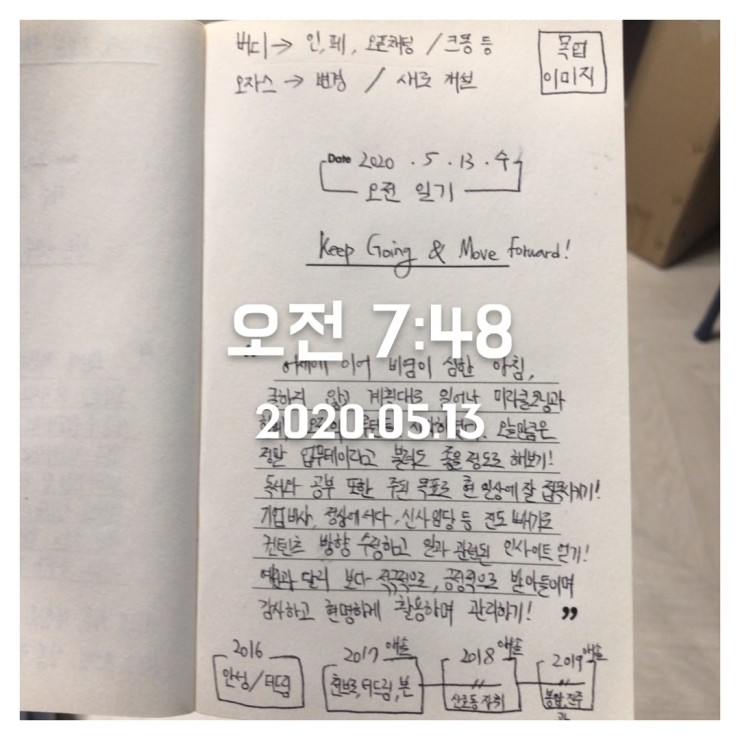 버디→ 인, 페, 오픈채팅 / 크몽 등
오자스 → 변경 / 새로 개설
목업
이미지
Date 2020 . 5 . 13 . 수
오전 일기
Keep Going & Move forward!
오전 7:48
“ 어제에 이어 비염이 심한 아침,
굴하지 않고 계획대로 일어나
2020.05.13
오늘만큼은
정말 업무데이라고 불러도 좋을 정도로 해보기!
독서와 공부 또한 주된 목표로 현 일상에 잘 접목시키기!
기업비사, 정상에서다, 신사임당 등 진도 빼기로
컨텐츠 방향 수립하고 일과 관련된 인사이트 얻기!
달리 보다 적극적으로, 긍정적으로 받아들이며
감사하고 현명하게 활용하며 관리하기! ”
2016
안성/더드림
2017 애솔
더드림, 본
2018 애솔
2019 애솔